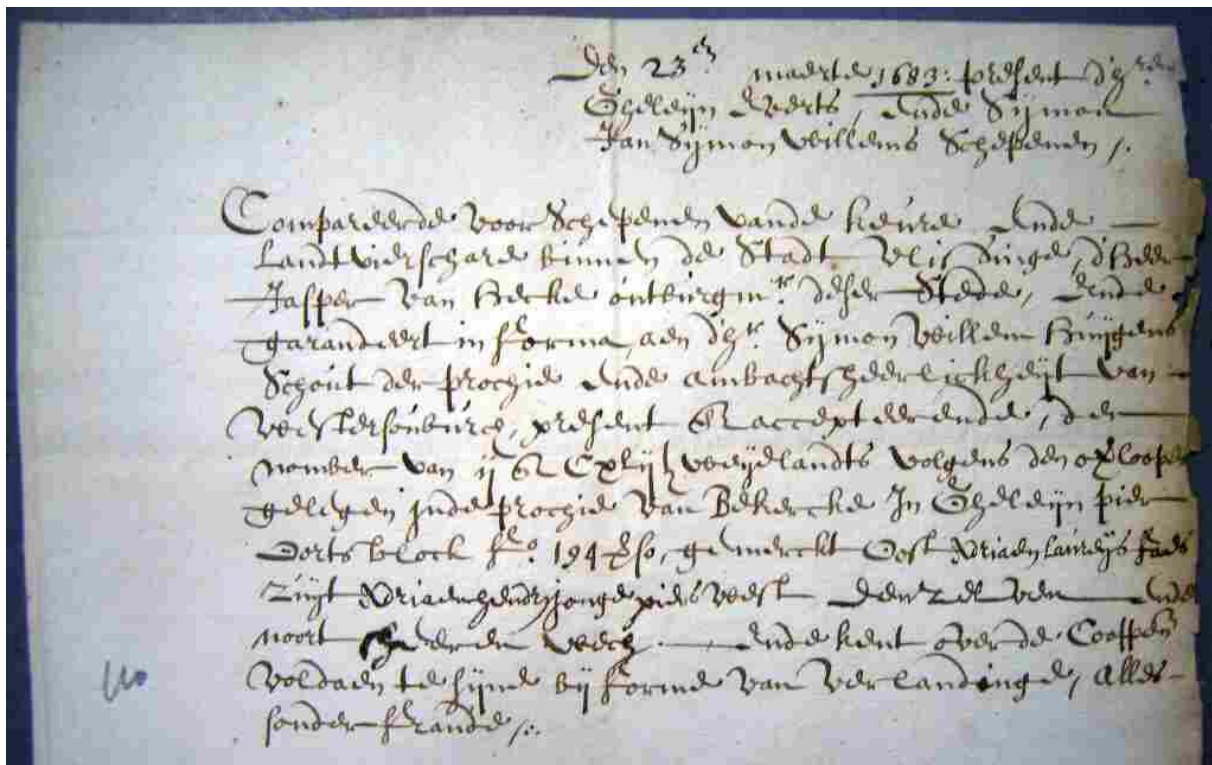 Den 23en maerte 1683: present d'hren
Gheleijn Everts, ende Sijmon
Jan Sijmon Willems Schepenen /.
Compareerde voor Schepenen vande keure ende —
Landtvierschare binnen de Stadt Vlissinge, d'heer
Jasper van Hecke outburgmr. deser Stede, ende
garandeert in forma, aen d'hr. Sijmon Willem Huijgens
Schout der prochie ende ambachtsheerlickheijt van —
Westersouburch, present en accepteerende, den
nomber van ij weijdlandts volgens den oplooper
gelegen inde prochie van Bekercke In Gheleijn Pier
Oorts block fo. 194 gemerckt Oost Adriaen Laureijs
Zuijt Adriaen jonge west den selven ende
noort heeren wech — ende kent over de Cooppen
voldaen te sijne bij forme van verlandinge, alles
sonder fraude /.
110